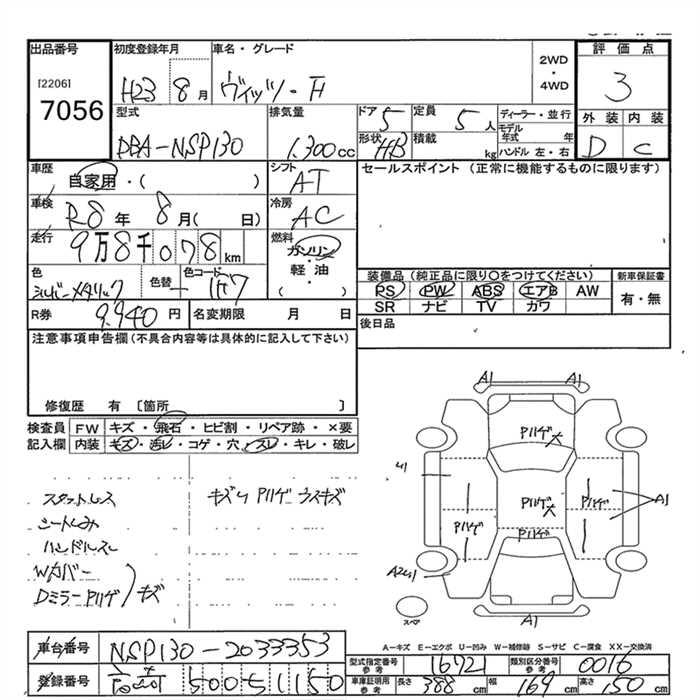 出品番号 初度登録年月 車名・グレード 2WD ・ 4WD 評価点
[2206]
7056
H23 8月 ヴィッツ・F 3
型式 排気量 ドア 5 定員 5人 ディーラー・並行 外装 内装
DBA-NSP130 1,300cc 形状 HB 積載 kg モデル年式 年 ハンドル 左・右 D C
車歴 自家用・( ) シフト AT セールスポイント (正常に機能するものに限ります)
車検 R8年 8月( 日) 冷房 AC
走行 9万8千078km 燃料 ガソリン・軽・油・( )
色 シルバーメタリック 色替 色コード 1F7 装備品(純正品に限り○をつけてください) 新車保証書
PS PW ABS エアB AW 有・無
SR ナビ TV カワ
R券 9,940円 名変期限 月 日 後日品
注意事項申告欄(不具合内容等は具体的に記入して下さい)
修復歴 有 〔箇所 〕
検査員 FW キズ・飛石・ヒビ割・リペア跡・×要
記入欄 内装 キズ・汚レ・コゲ・穴・スレ・キレ・破レ
スタットレス キズ、Pハゲ ウスキズ
シートしみ
ハンドルスレ
Wカバー
Dミラー Pハゲ キズ
A1 A1
Pハゲ大
U1
Pハゲ大 Pハゲ A1
Pハゲ
A2U1
スペア A1
A-キズ E-エクボ U-凹み W-補修跡 S-サビ C-腐食 XX-交換済
車台番号 NSP130-2033353
型式指定番号 参考 16721 類別区分番号 参考 0016
登録番号 500 5 1150
車庫証明用 参考 長さ 388cm 幅 169cm 高さ 150cm